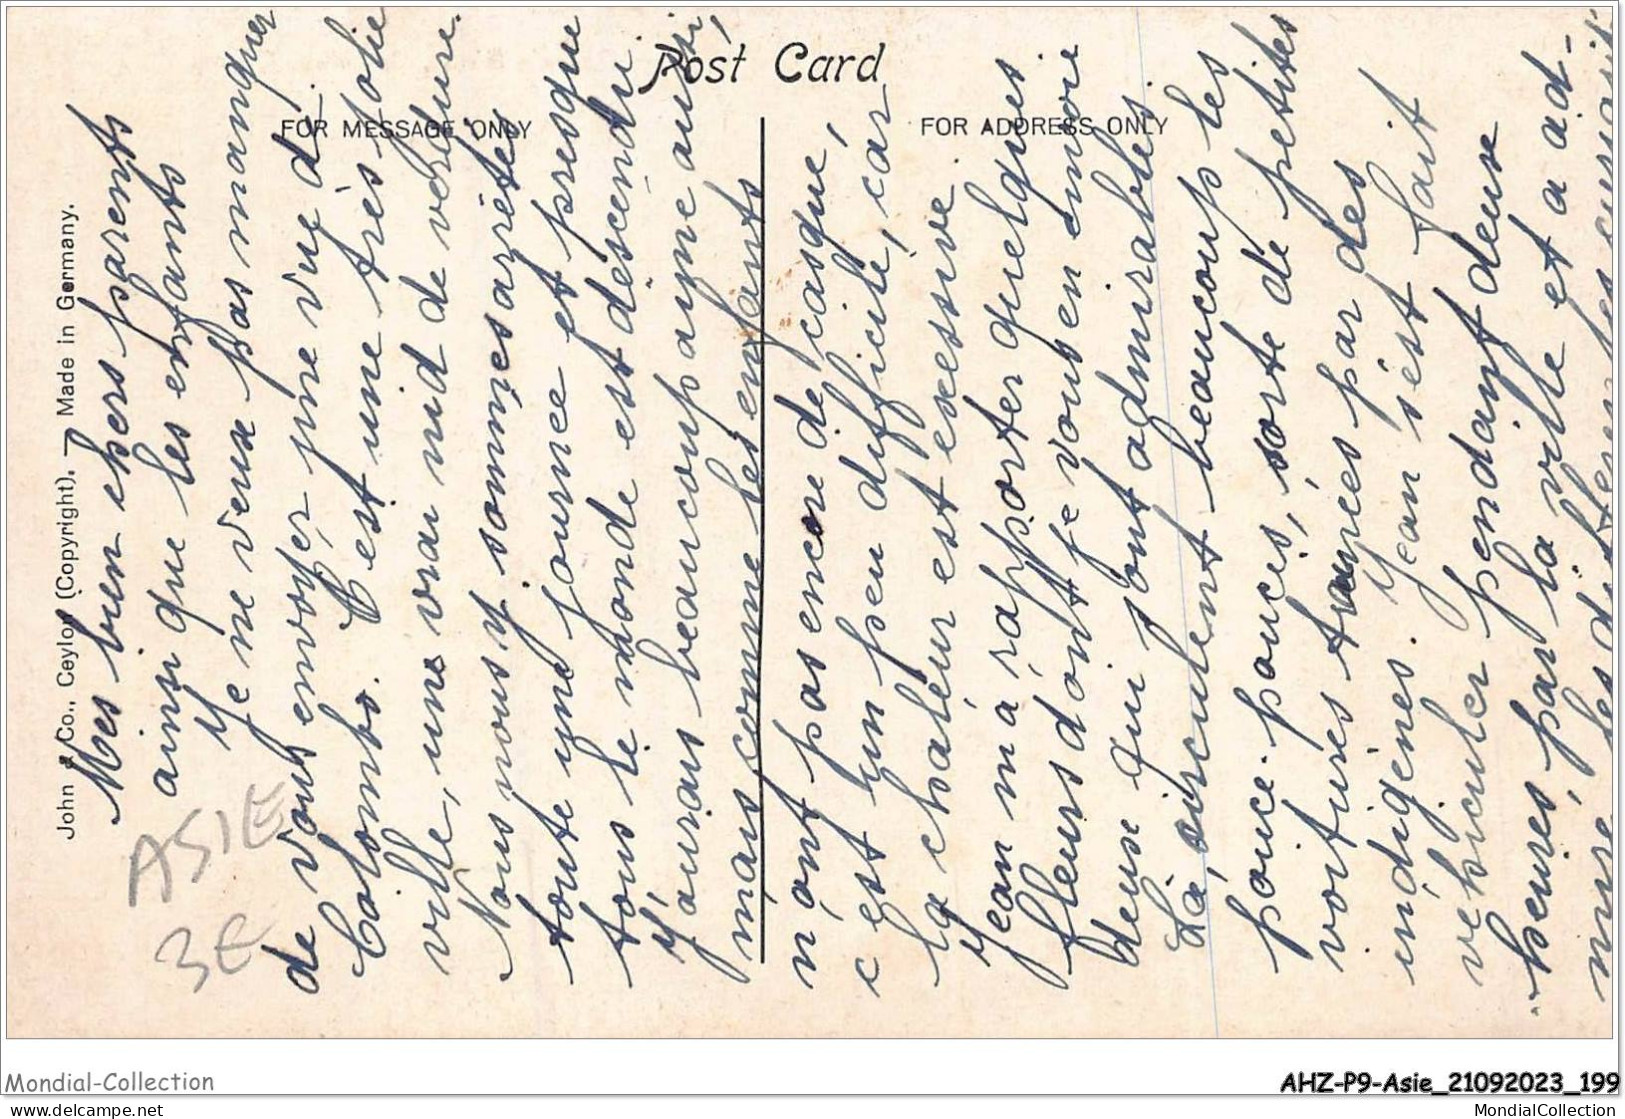 Post Card
FOR MESSAGE ONLY
FOR ADDRESS ONLY
John & Co., Ceylon (Copyright). — Made in Germany.
Mes bien chers parents
ainsi que les enfants
Je ne veux pas manquer
de vous envoyer une vue de
Colombo. C'est une très jolie
ville, une vrai nid de verdure.
Nous nous y sommes arrêtés
toute une journée et presque
tous le monde est descendu.
J'aurais beaucoup aimé aussi,
mais comme les enfants
n'ont pas encore de casque,
c'est un peu difficile, car
la chaleur est excessive.
Jean m'a rapporter quelques
fleurs dont je vous en envoie
deux qui sont admirables.
Là, circulent beaucoup les
pouce-pouces, sorte de petites
voitures traînées par des
indigènes. Jean s'est fait
véhiculer pendant deux
heures, par la ville et a ad-
miré, les différentes curiosit
ASIE
3E
Mondial-Collection
AHZ-P9-Asie_21092023_199
https://www.delcampe.net
MondialCollection